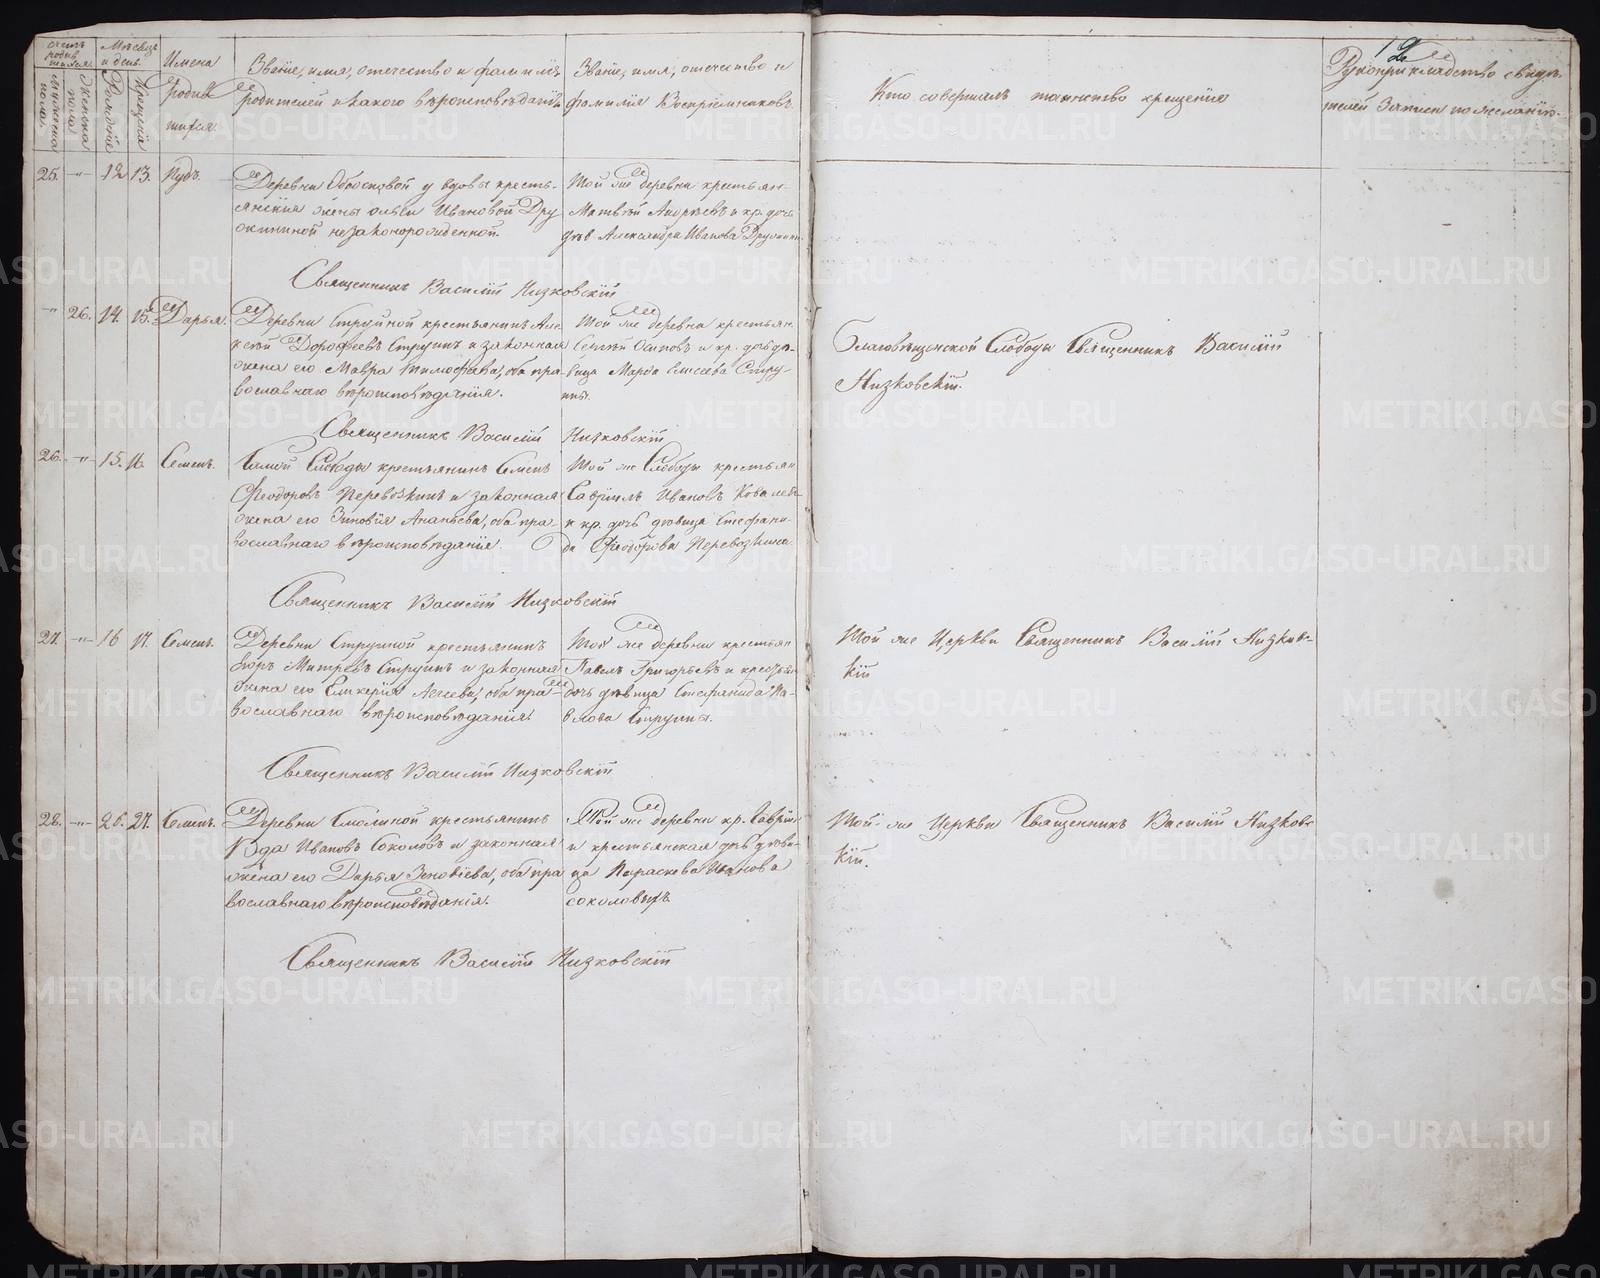 Счетъ родив
шихся.
мужеска пола.
женска пола
Мѣсяцъ и день.
Рожденія
Крещенія
Имена
родив
шихся.
Званіе, имя, отечество и фамилія
родителей и какого вѣроисповѣданія.
Званіе, имя, отечество и
фамилія Воспріемниковъ.
Кто совершалъ таинство крещенія
12
Рукоприкладство свидѣ-
телей записи по желанію.
25. -"- 12 13. Пудъ.
Деревни у вдовы кресть-
янскія жены Ивановой Дру
жининой незаконорожденной.
Той же деревни крестьян-
Матвѣй Андреевъ и кр. дочь
дѣв. Александра Иванова Дружинин
Священникъ Василій Низковскій
" 26. 14. 15. Дарья.
Деревни Струиной крестьянинъ Але
ксѣй Дорофеевъ Струинъ и законная
жена его Мавра Тимофѣева, оба пра-
вославнаго вѣроисповѣданія.
Той же деревни крестьян.
Сергѣй Осиповъ и кр. дочь дѣ-
вица Марфа Елисеева Стру-
ины.
Благовѣщенской Слободы Священникъ Василій
Низковскій.
Священникъ Василій Низковскій
26. -"- 15. 16. Семенъ.
Самой Слободы крестьянинъ Семенъ
Феодоровъ Перевозкинъ и законная
жена его Зиновія Ананьева, оба пра-
вославнаго вѣроисповѣданія.
Той же Слободы крестьян
Гавріилъ Ивановъ Ковалевъ
и кр. дочь дѣвица Стефани-
да Феодорова Перевозкина
Священникъ Василій Низковскій
27. -"- 16 17. Семенъ.
Деревни Струиной крестьянинъ
Митревъ Струинъ и законная
жена его Гликерія Агеева, оба пра-
вославнаго вѣроисповѣданія.
Той же деревни крестьян
Павелъ Григорьевъ и крестьян
дочь дѣвица Стефанида Па-
влова Струины.
Той же Церкви Священникъ Василій Низков-
скій
Священникъ Василій Низковскій
28. -"- 26. 27. Семенъ.
Деревни Смолиной крестьянинъ
Ивановъ Соколовъ и законная
жена его Дарья Зеновіева, оба пра
вославнаго вѣроисповѣданія.
Той же деревни кр. Гаврiи
и крестьянская дочь дѣви-
ца Параскева Иванова
Соколовыхъ
Той-же Церкви Священникъ Василій Низков
скій.
Священникъ Василій Низковскій
METRIKI.GASO-URAL.RU